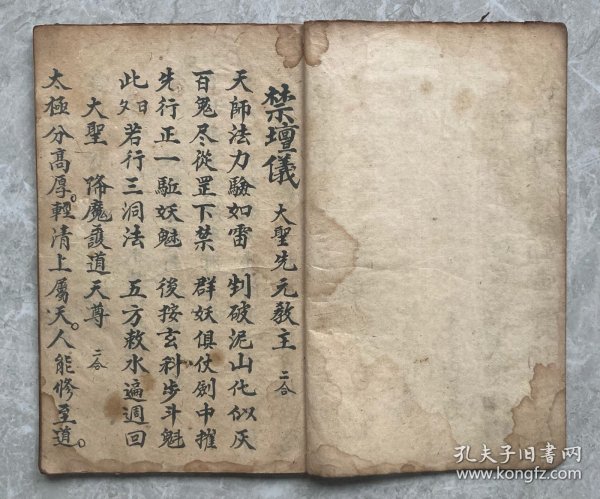 禁壇儀 大聖先元教主 二合
天師法力驗如雷 剉破泥山化似灰
百鬼尽從罡下禁 群妖俱伏劍中摧
先行正一駈妖魅 後按玄科步斗魁
此日若行三洞法 五方敕水遍週回
大聖 降魔護道天尊 二合
太極分高厚。輕清上屬天。人能修至道。
孔夫子旧书网
www.kongfz.com